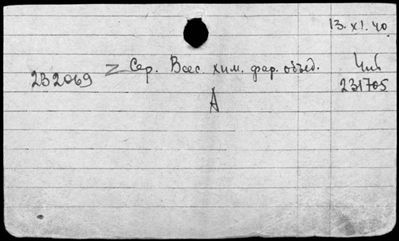 13. XI. 40.
Сер. Всес. хим. фар. объед.
232069
231705
А